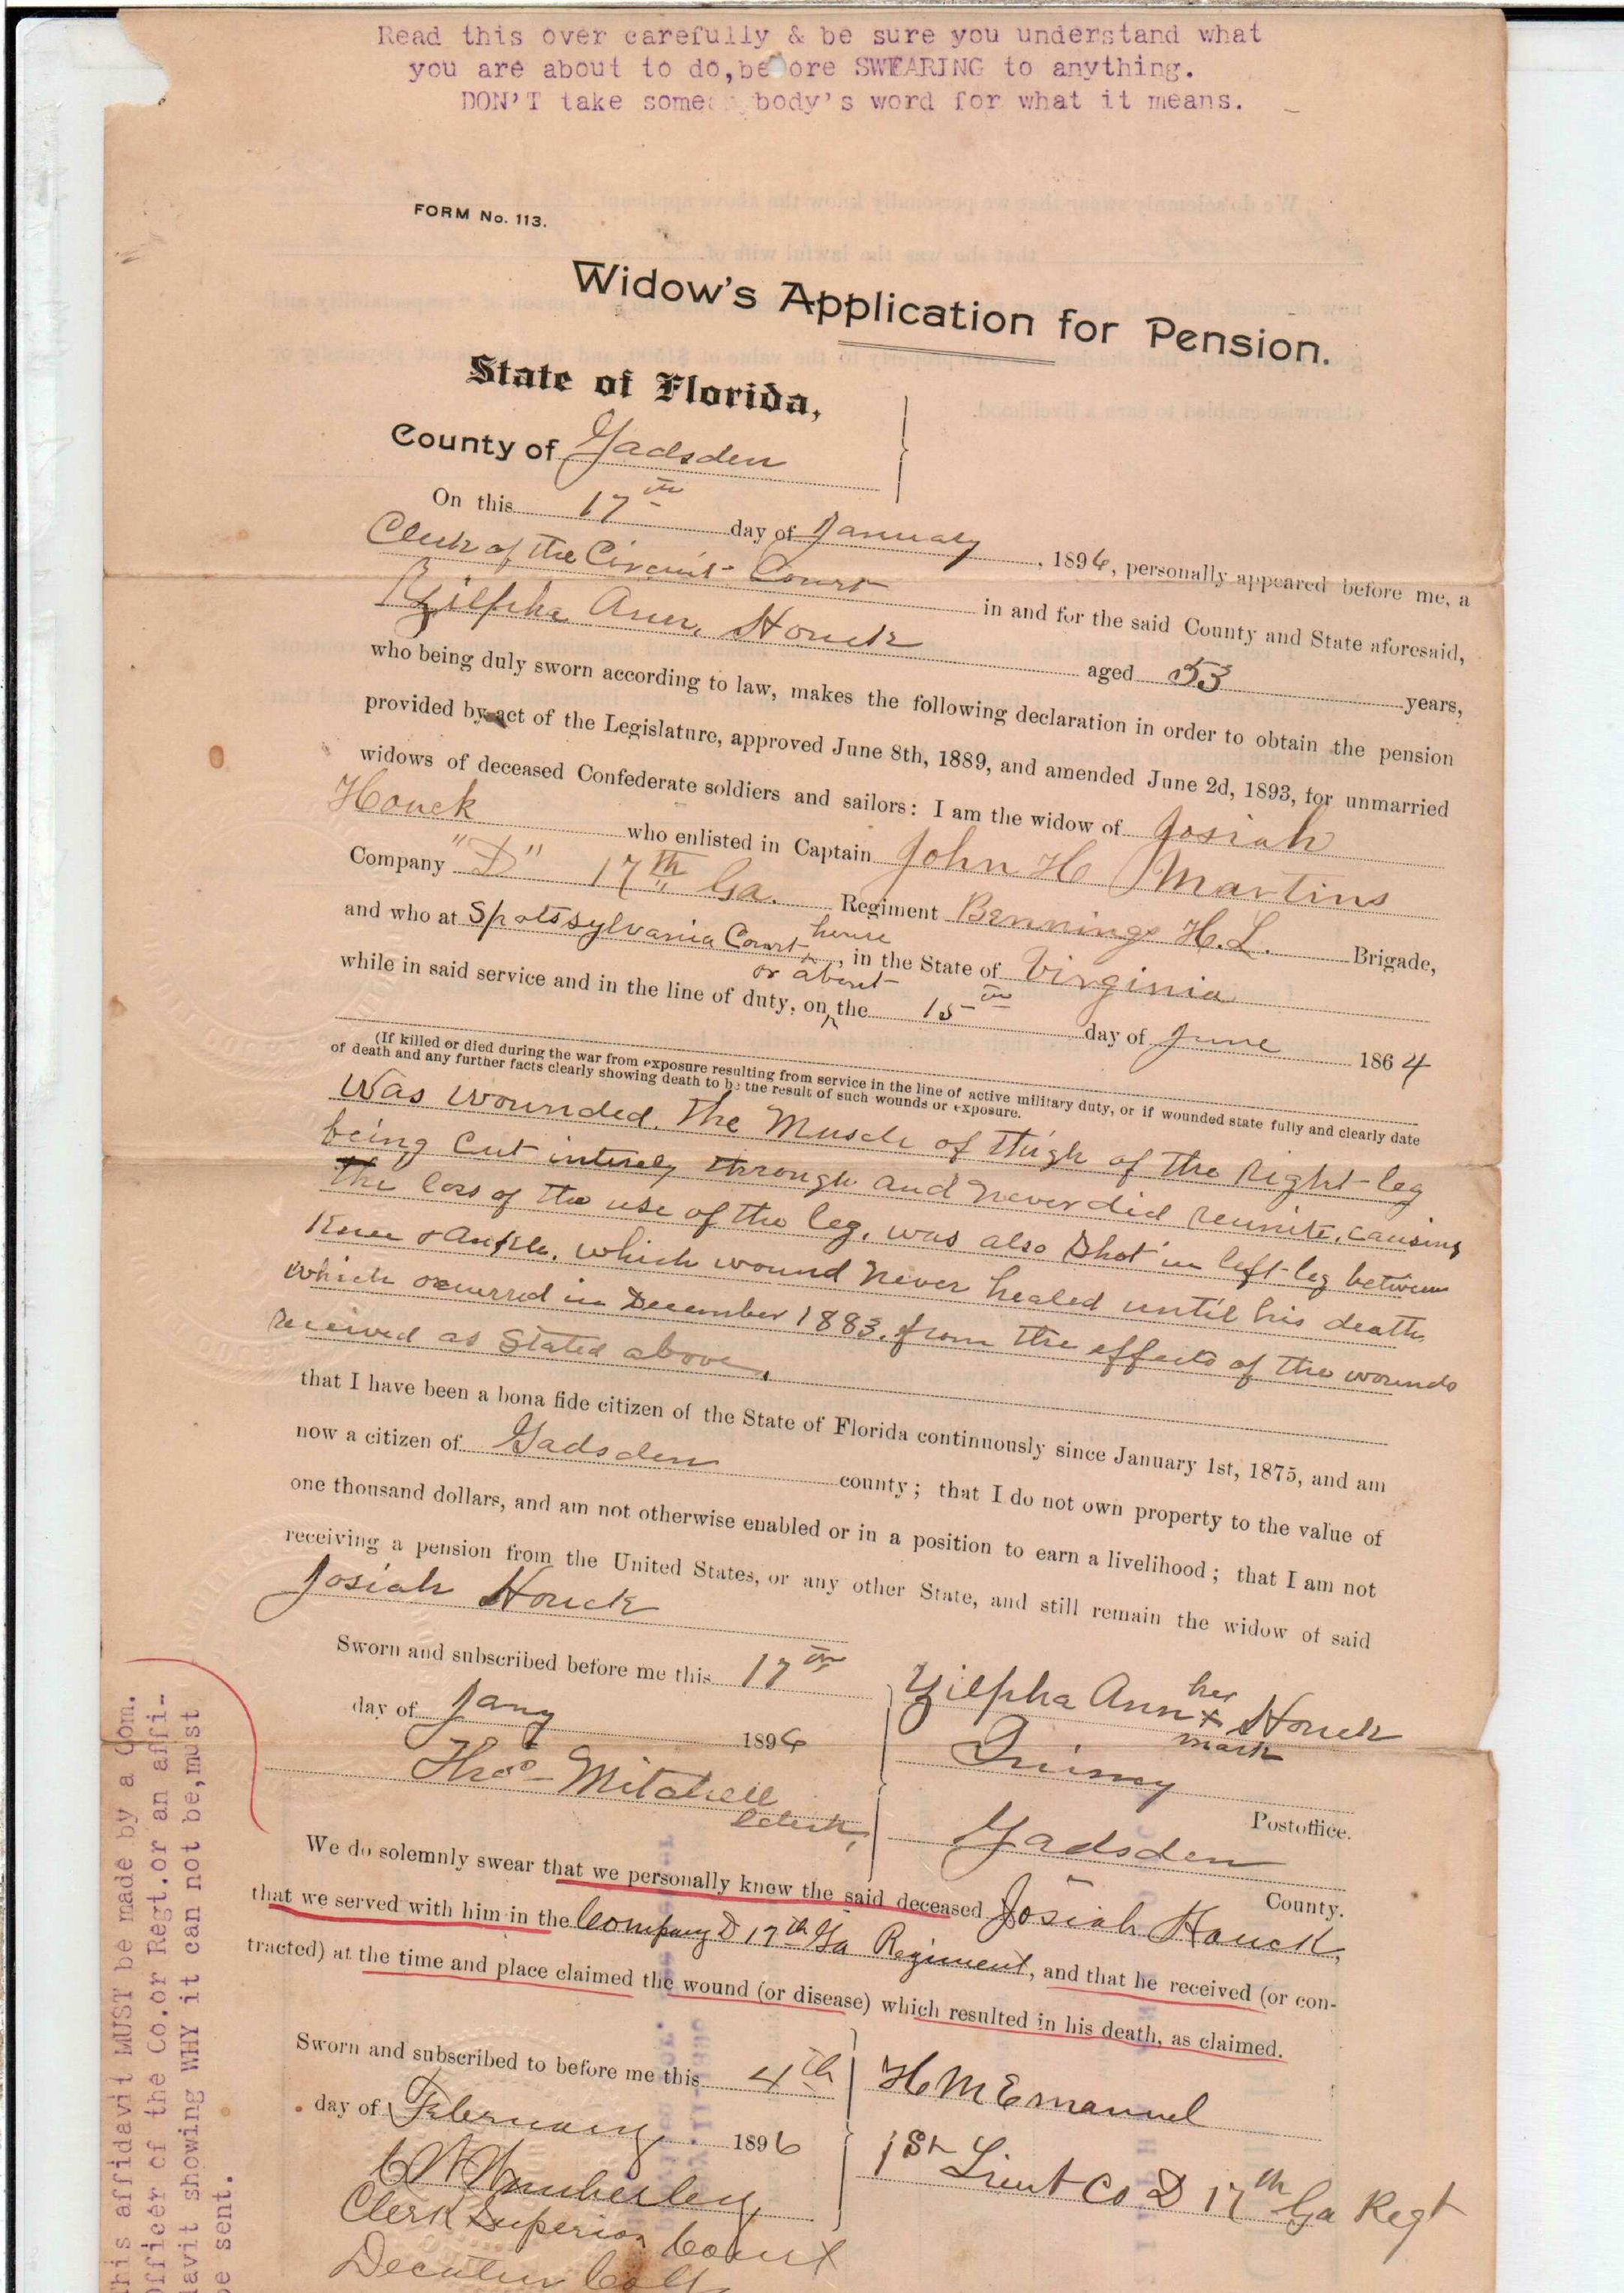 Read this over carefully & be sure you understand what
you are about to do,before SWEARING to anything.
DON'T take some body's word for what it means.
FORM No. 113.
Widow's Application for Pension.
State of Florida,
County of Gadsden
On this 17th day of January, 1896, personally appeared before me, a
Clerk of the Circuit Court in and for the said County and State aforesaid,
Zilpha Ann Houck aged 53 years,
who being duly sworn according to law, makes the following declaration in order to obtain the pension
provided by act of the Legislature, approved June 8th, 1889, and amended June 2d, 1893, for unmarried
widows of deceased Confederate soldiers and sailors: I am the widow of Josiah
Houck who enlisted in Captain John H Martins
Company "D" 17th Ga. Regiment Bennings H.L. Brigade,
and who at Spotssylvania Court house, in the State of Virginia
while in said service and in the line of duty, on or about the 15th day of June 1864
(If killed or died during the war from exposure resulting from service in the line of active military duty, or if wounded state fully and clearly date
of death and any further facts clearly showing death to be the result of such wounds or exposure.
Was wounded. The Muscle of thigh of the Right leg
being cut intirely through and never did reunite, causing
the loss of the use of the leg, was also Shot in left leg between
Knee & Ankle, which wound never healed until his death
which occurred in December 1883. from the effects of the wounds
received as Stated above,
that I have been a bona fide citizen of the State of Florida continuously since January 1st, 1875, and am
now a citizen of Gadsden county; that I do not own property to the value of
one thousand dollars, and am not otherwise enabled or in a position to earn a livelihood; that I am not
receiving a pension from the United States, or any other State, and still remain the widow of said
Josiah Houck
Sworn and subscribed before me this 17th
day of Jany 1896
Thos Mitchell
Clerk,
Zilpha Ann her x mark Houck
Quincy
Postoffice.
Gadsden
County.
We do solemnly swear that we personally knew the said deceased Josiah Houck,
that we served with him in the Company D 17th Ga Regiment, and that he received (or con-
tracted) at the time and place claimed the wound (or disease) which resulted in his death, as claimed.
Sworn and subscribed to before me this 4th
day of February 1896
Clerk Superior Court
Decatur
H M Emanuel
1st Lieut Co D 17th Ga Regt
This affidavit MUST be made by a Com.
Officer of the Co.or Regt.or an affi-
davit showing WHY it can not be,must
be sent.